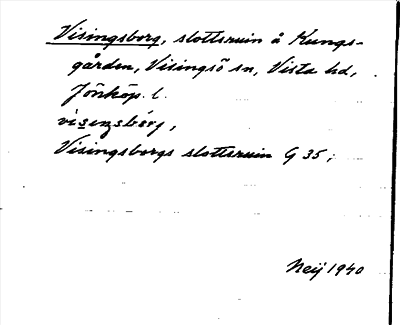 Visingsborg, slottsruin å Kungs-
gården, Visingsö sn, Vista hd,
Jönköp. l.
Visingsborgs slottsruin G 35;
Neij 1940